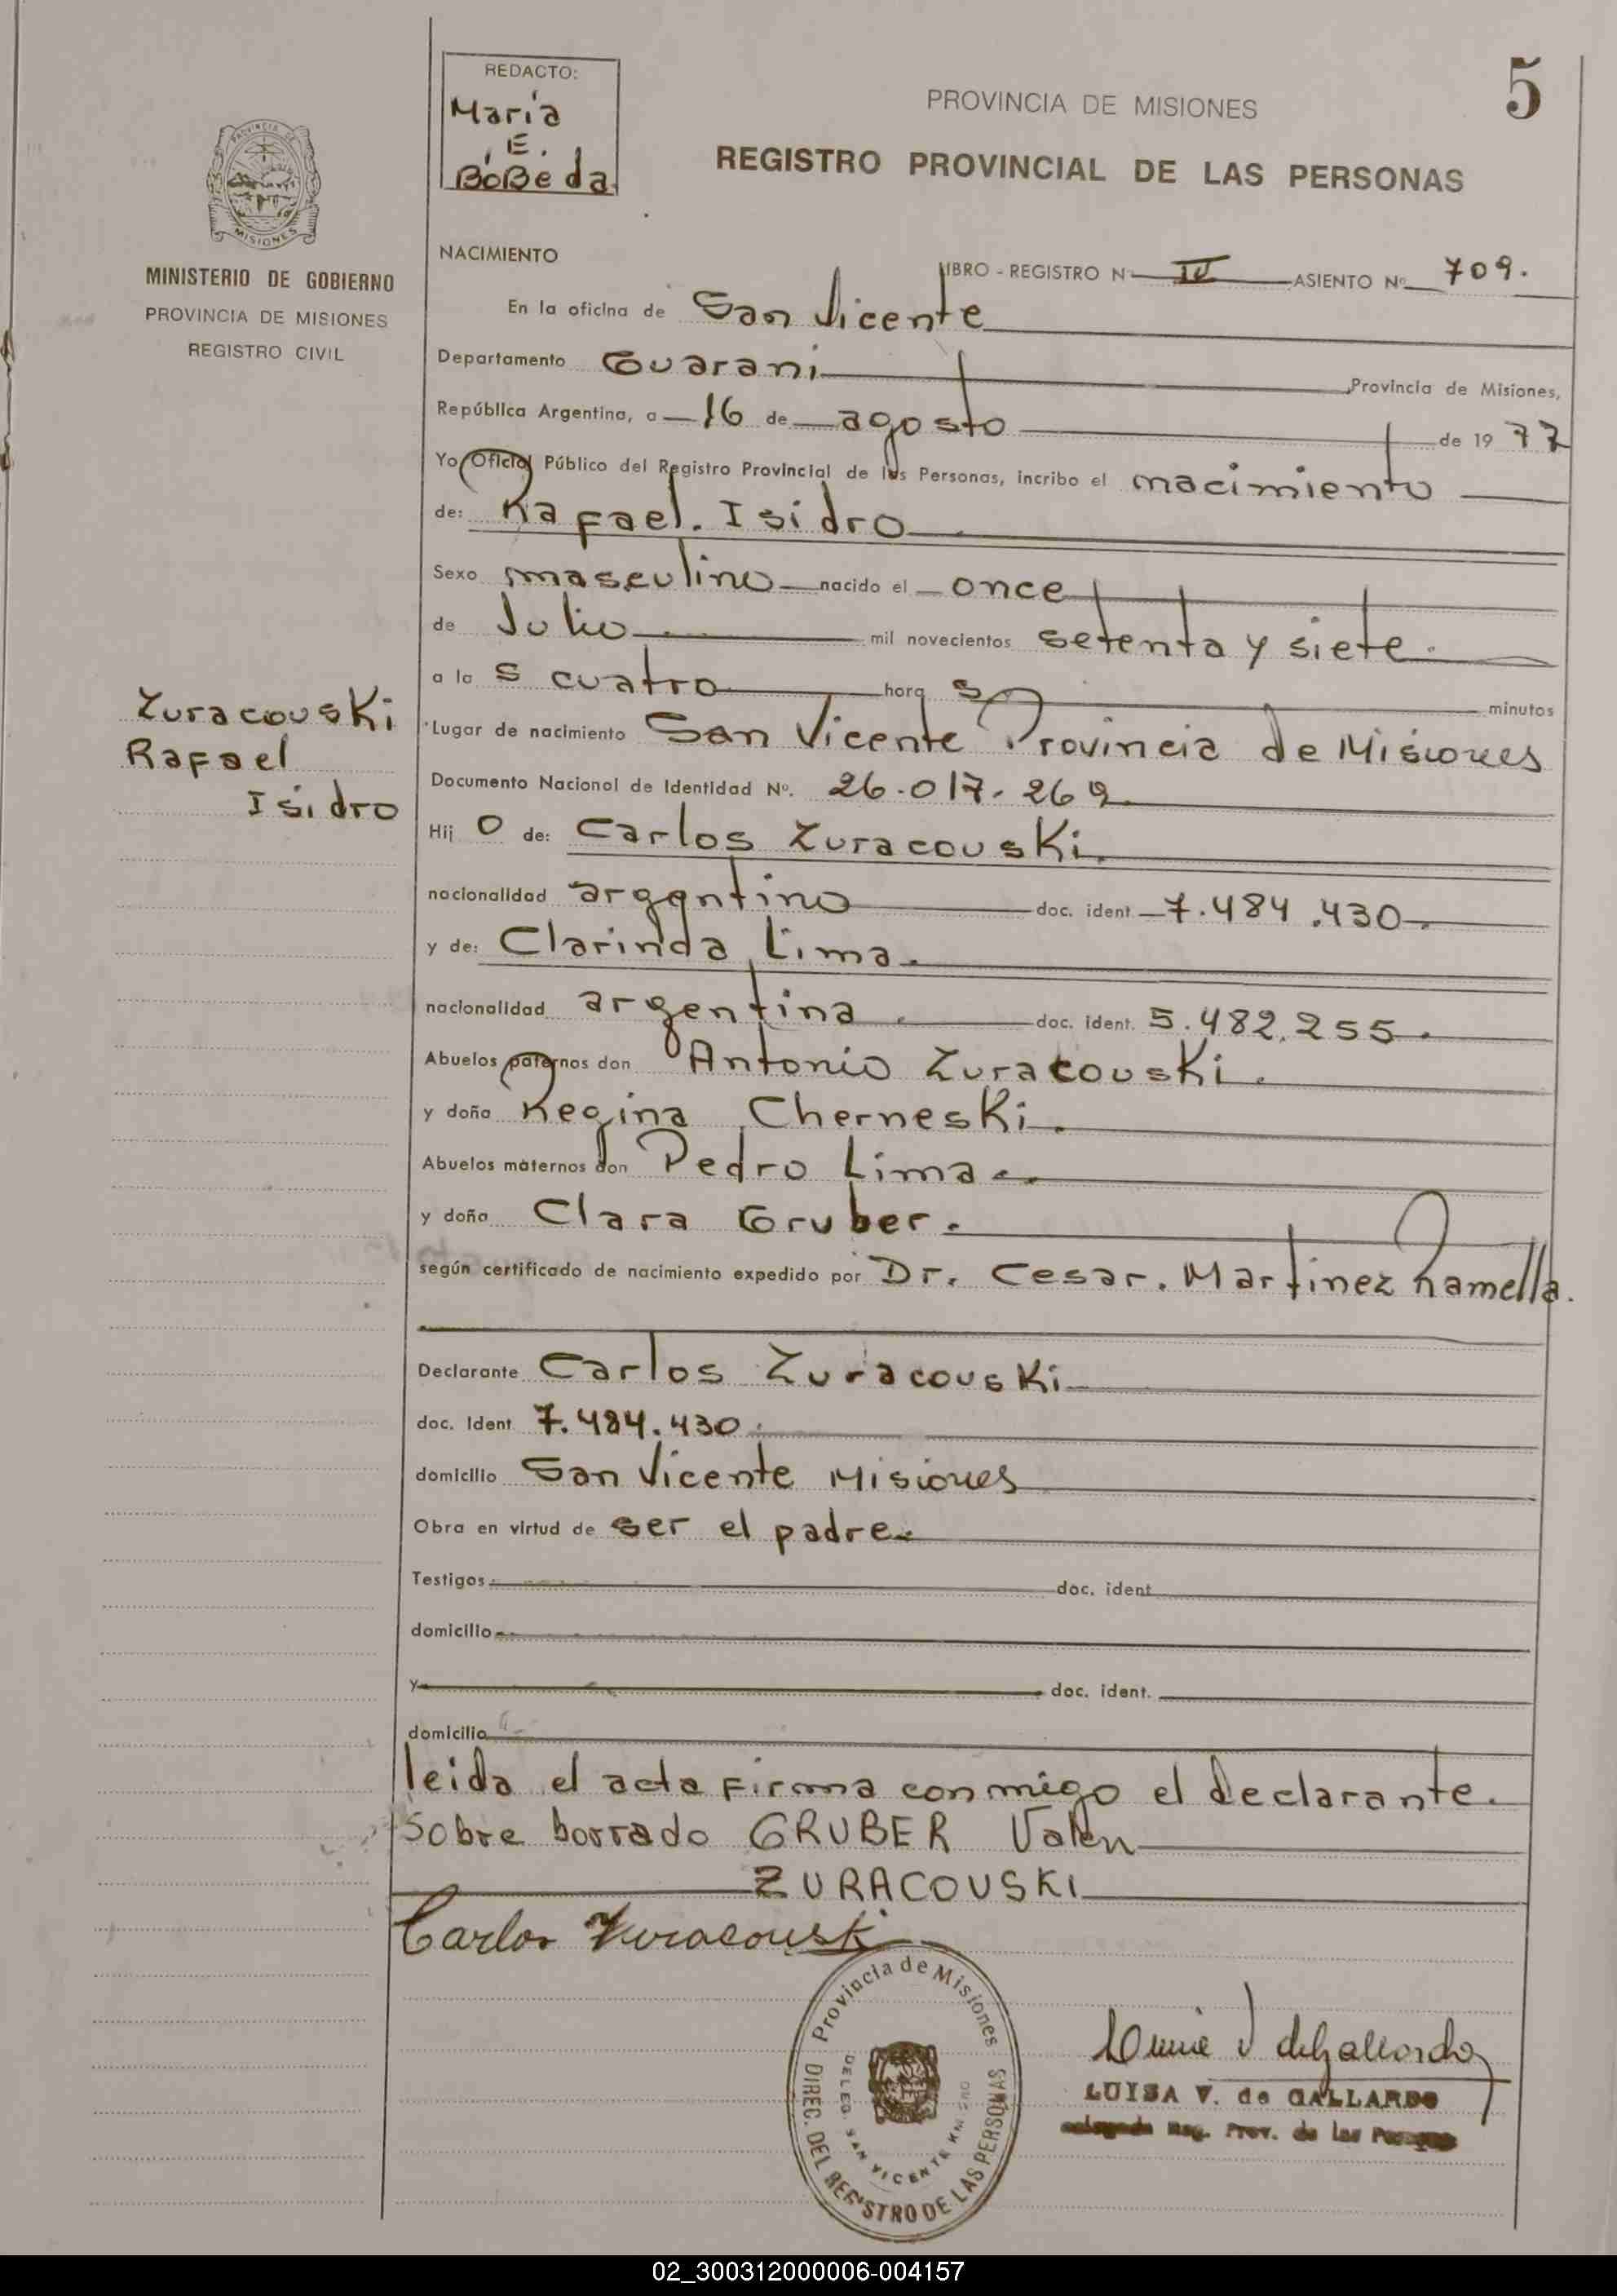 REDACTO:
María
E.
BoBeda
5
PROVINCIA DE MISIONES
REGISTRO PROVINCIAL DE LAS PERSONAS
PROVINCIA DE
MISIONES
MINISTERIO DE GOBIERNO
PROVINCIA DE MISIONES
REGISTRO CIVIL
NACIMIENTO
LIBRO - REGISTRO Nº IV ASIENTO Nº 709.
En la oficina de San Vicente
Departamento Guarani Provincia de Misiones,
República Argentina, a 16 de agosto de 1977
Yo Oficial Público del Registro Provincial de las Personas, incribo el nacimiento
de: Rafael. Isidro
Sexo masculino nacido el once
de Julio mil novecientos setenta y siete.
a la s cuatro hora s minutos
Zuracouski
Rafael
Isidro
Lugar de nacimiento San Vicente Provincia de Misiones
Documento Nacional de Identidad Nº. 26.017.269
Hij o de: Carlos Zuracouski.
nacionalidad argentino doc. ident 7.484.430
y de: Clarinda Lima.
nacionalidad argentina doc. ident. 5.482.255.
Abuelos paternos don Antonio Zuracouski.
y doña Regina Cherneski.
Abuelos maternos don Pedro Lima
y doña Clara Gruber.
según certificado de nacimiento expedido por Dr. Cesar. Martinez Ramella.
Declarante Carlos Zuracouski
doc. Ident 7.484.430.
domicilio San Vicente Misiones
Obra en virtud de ser el padre
Testigos doc. ident
domicilio
y doc. ident.
domicilio
leida el acta firma conmigo el declarante.
Sobre borrado GRUBER Valen
ZURACOUSKI
Carlos Zuracouski
Provincia de Misiones
DELEG. SAN VICENTE
DIREC. DEL REGISTRO DE LAS PERSONAS
LUISA V. de GALLARDO
Reg. Prov. de las Personas
02_300312000006-004157